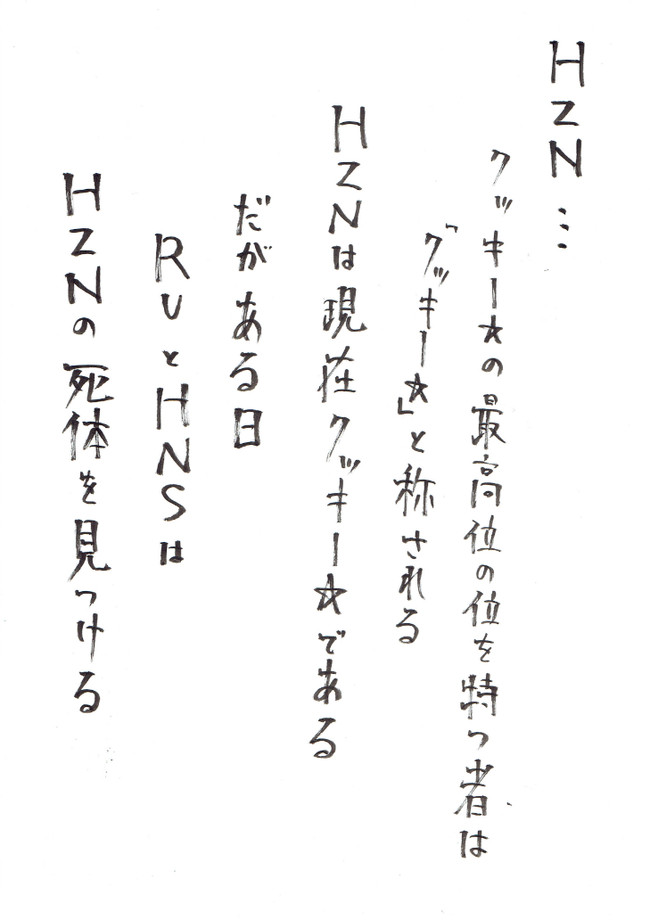 HZN…
クッキー☆の最高位の位を特つ者は
「グッキー☆」と称される
HZNは現在クッキー☆である
だがある日
RUとHNSは
HZNの死体を見つける